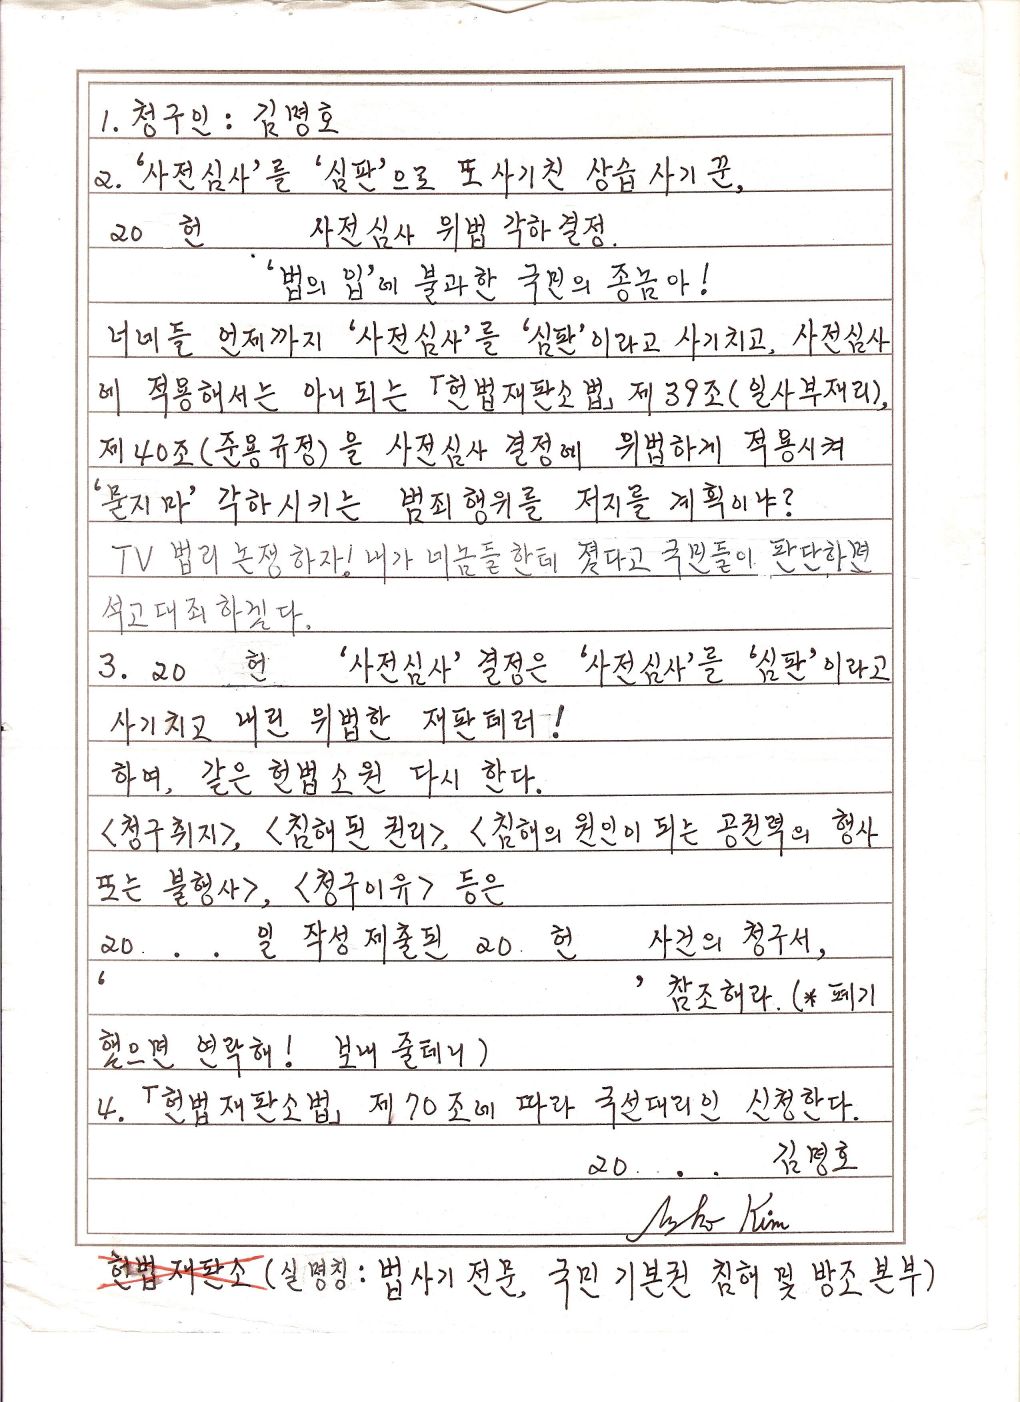 1. 청구인 : 김명호
2. '사전심사'를 '심판'으로 또 사기친 상습 사기꾼,
20 헌 사전심사 위법 각하결정.
'법의 입'에 불과한 국민의 종놈아!
너네들 언제까지 '사전심사'를 '심판'이라고 사기치고, 사전심사
에 적용해서는 아니되는 「헌법재판소법」 제39조(일사부재리),
제40조(준용규정)을 사전심사 결정에 위법하게 적용시켜
'묻지마' 각하시키는 범죄행위를 저지를 계획이냐?
TV 법리 논쟁하자! 내가 네놈들한테 졌다고 국민들이 판단하면
석고대죄하겠다.
3. 20 헌 '사전심사' 결정은 '사전심사'를 '심판'이라고
사기치고 내린 위법한 재판테러!
하여, 같은 헌법소원 다시 한다.
<청구취지>, <침해된 권리>, <침해의 원인이 되는 공권력의 행사
또는 불행사>, <청구이유> 등은
20 . . . 일 작성 제출된 20 . 헌 사건의 청구서,
' ' 참조해라. (* 폐기
했으면 연락해! 보내줄테니)
4. 「헌법재판소법」 제70조에 따라 국선대리인 신청한다.
20 . . . 김명호
Kim
헌법재판소 (실명칭 : 법사기전문, 국민 기본권 침해 및 방조 본부)